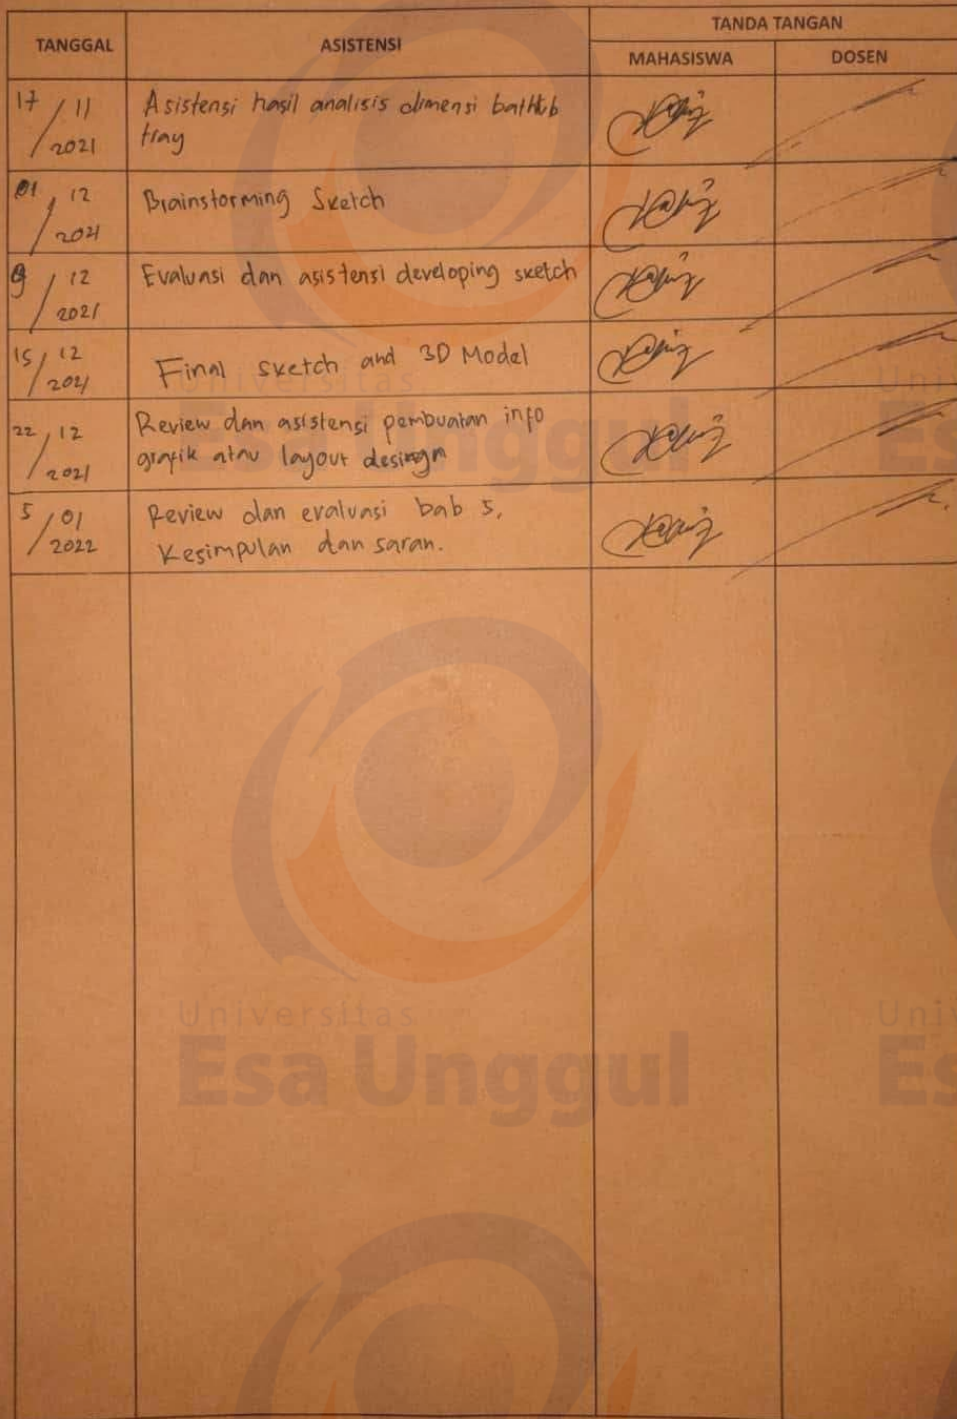 TANGGAL
ASISTENSI
TANDA TANGAN
MAHASISWA
DOSEN
17 / 11
/ 2021
Asistensi hasil analisis dimensi bathtub
tray
01 / 12
/ 2021
Brainstorming Sketch
9 / 12
/ 2021
Evaluasi dan asistensi developing sketch
15 / 12
/ 2021
Final sketch and 3D Model
22 / 12
/ 2021
Review dan asistensi pembuatan info
grafik atau layout desingn
5 / 01
/ 2022
Review dan evaluasi bab 5,
Kesimpulan dan saran.
Universitas
Esa Unggul
Uni
Es
Universitas
Esa Unggul
Uni
Es